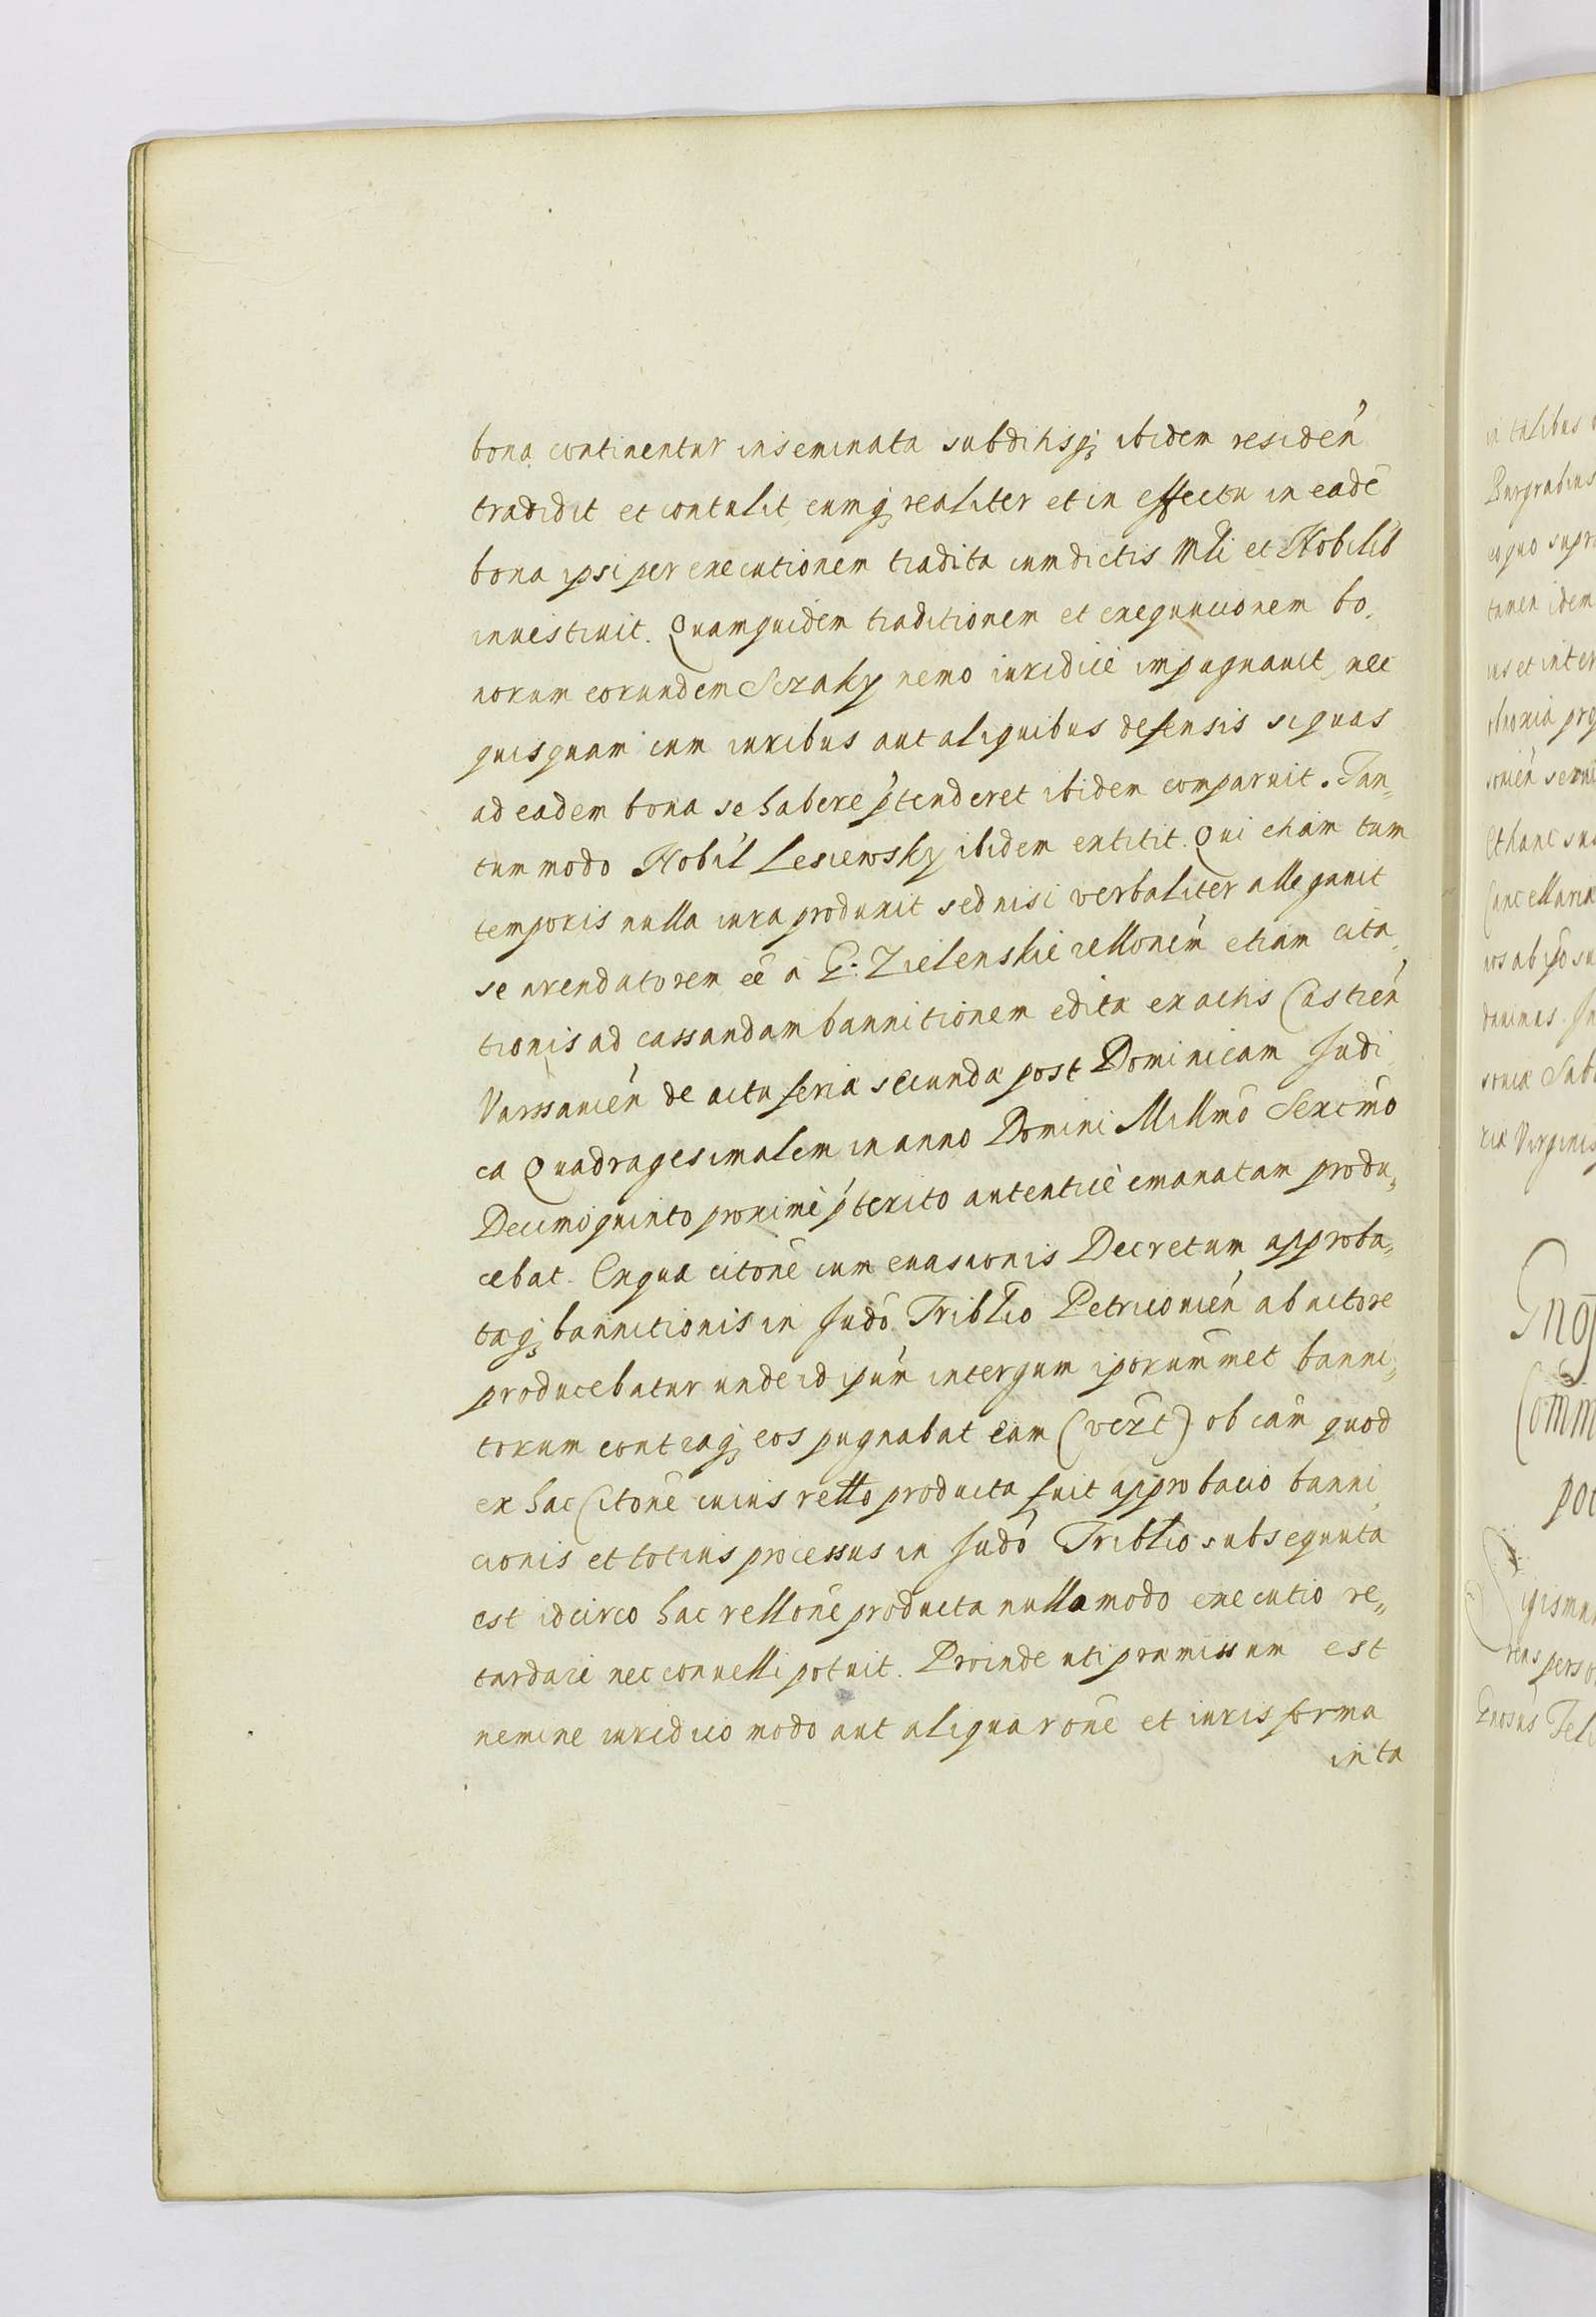 bona continentur inseminata subditisq; ibidem residen̄
tradidit et contulit, eumq; realiter et in effectu in eadē
bona ipsi per executionem tradita cum dictis Mli et Nobilib
inuestiuit. Quamquidem traditionem et exequucionem bo,
norum eorundem Serzaky nemo iuridicè impugnauit, nec
quisquam cum iuribus aut aliquibus defensis siquas
ad eadem bona se habere p̄tenderet ibidem comparuit. Tan„
tum modo Nobil Lesiewsky ibidem extitit. Qui etiam tum
temporis nulla iura produxit sed nisi verbaliter allegauit
se arendatorem eē à G: Zielenskie rellonem̄ etiam cita,
tionis ad cassandam bannitionem edita ex actis Castren̄
Varssauien̄ de actu feria secunda post Dominicam Judi
ca Quadragesimalem in anno Domini Millmō Sexcmō
Decimoquinto proximè p̄terito autenticè emanatam produ„
cebat. Ex qua citonē cum euasionis Decretum approba„
taq; bannitionis in Judō Triblio Petricouien̄ ab actore
producebatur unde id ipūm intergum iporummet banni„
torum contraq; eos pugnabat eam (vezt) ob cam̄ quod
ex hac Citonē cuius rello producta fuit approbacio banni
cionis et totius processus in Judō Triblio subsequuta
est idcirco hac rellonē producta nullo modo executio re„
tardari nec conuelli potuit. Proinde uti præmissum est
nemine iuridico modo aut aliqua ronē et iuris forma
in ta
in talibus
Burgrabius
tamen idem
ius et inter
Cancellaria
Virginis
Comm